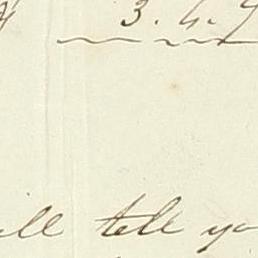 3. 4. 9
ill tell yo